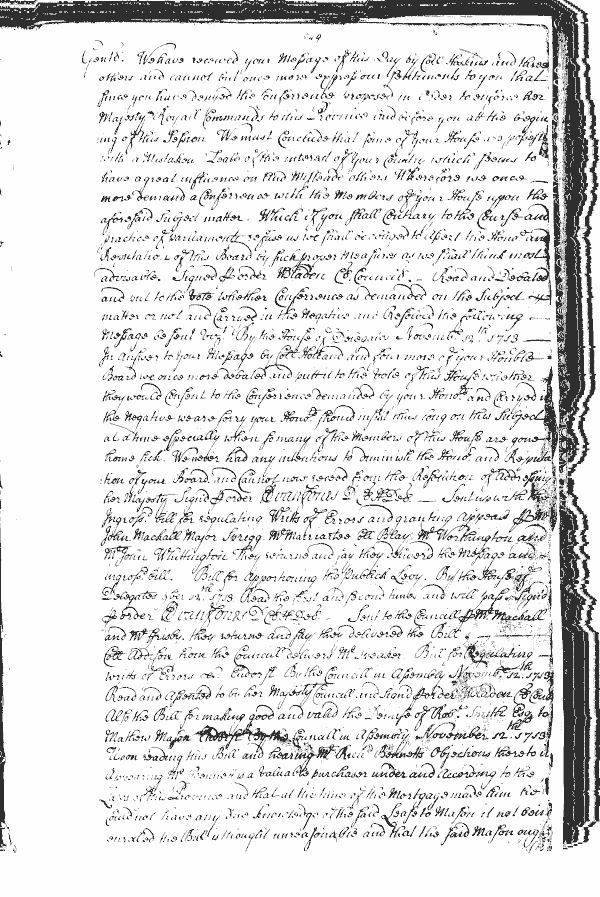 49
Gent.n We have received your Message of this Day by Coll Hoskins and three
others and cannot but once more express our Sentiments to you that
Since you have denyed the Conferrence proposed in Order to enforce her
Majesty Royall Commands to this Province laid before you att the begin
ing of this Session We must Conclude that some of your House are possest
with a Mistaken of the interest of your Country which seems to
have a great influence on and Misleads others Wherefore we once
more demand a Conferrence with the Members of your House upon the
aforesaid Subject matter. Which if you shall Contrary to the Course and
practice of Parliaments refuse us we shall be obliged to Assert the Hono.r and
Reputation of this Board by such proper Measures as we shall think most
advisable. Signed p order WBladen Cl. Council. Read and Debated
and put to the Vote whether Conferrence as demanded on the Subject
matter or not and Carryed in the Negative and Resolved the following
Message be sent viz.t By the House of Delegates Novemb.r 12.th 1713
In Answer to your Message by Coll Holland and four more of your Hon.ble
Board we once more debated and putt it to the Vote of this House whether
they would Consent to the Conferrence demanded by your Hono.rs and Carryed in
the Negative we are sorry your Hono.rs should insist thus long on this Subject
at a time especially when so many of the Members of this House are gone
home sick. We never had any intentions to diminish the Hono.r and Reputa
tion of your Board and Cannot now receed from the Resolution of Addressing
her Majesty Signd p order Evan Jones D. Cl. H. Del. Sent up with the
Ingross.d bill for regulating Writts of Errors and granting Appeals p M.r
John Mackall Major Sprigg M.r Macnartee Coll Blay, M.r Worthington and
M.r John Whittington They returne and say they deliverd the Message and
ingross.d bill. Bill for Apportioning the Publick Levy. By the House of
Delegates 9ber 12.th 1713 Read the first and second times and will pass Signd
p order Evan Jones D Cl H Del. Sent to the Councill p M.r Mackall
and M.r Frisby they returne and say they delivered the Bill
Coll Addison from the Councill delivers M.r Speaker Bill for Regulating
writts of Errors &c. Endorst By the Councill in Assembly Novemb.r 12.th 1713
Read and Assented to by her Majestys Councill and Signd p order WBladen Cl Coun
Also the Bill for making good and valid the Demise of Rob.t Smith Esq. to
Mathew Mason Endorst By the Councill in Assembly November 12.th 1713
Upon reading this Bill and hearing M.r Rich.d Bennetts Objections thereto it
Appearing M.r Bennet is a valuable purchaser under and According to the
Laws of this Province and that at the time of the Mortgage made him he
Could not have any Due knowledge of the said Lease to Mason it not being
enroled the Bill is thought unreasonable and that the said Mason oug